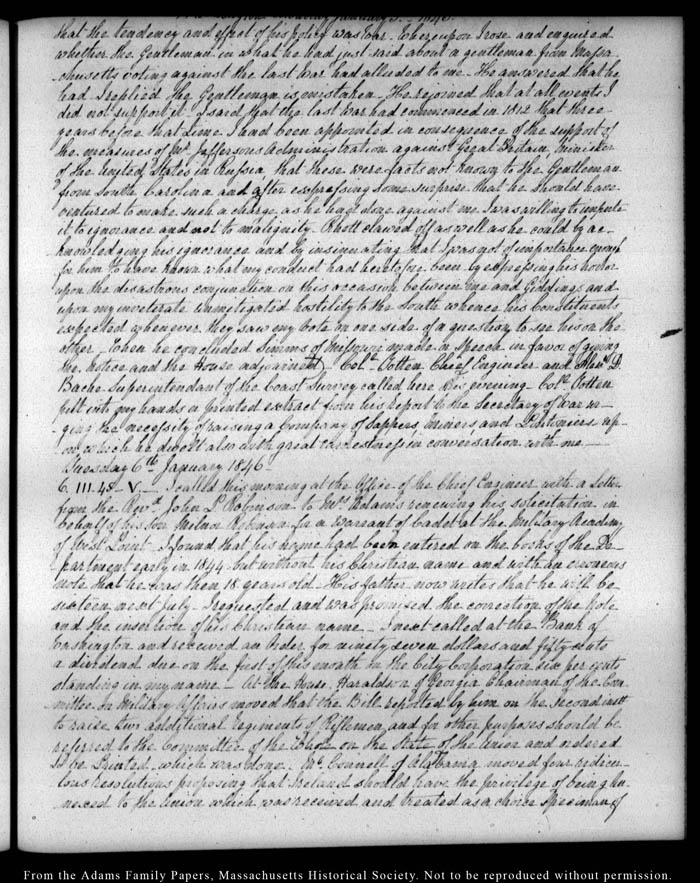 January 5. 1846.
that the tendency and effect of his policy was War. Whereupon I rose and enquired
whether the Gentleman in what he had just said about a gentleman from Massa-
chusetts voting against the last War had alluded to me. He answered that he
had. I replied the Gentleman is mistaken. He rejoined that at all events I
did not support it. I said that the last War had commenced in 1812 that three
years before that time I had been appointed in consequence of the support of
the measures of Mr. Jefferson's Administration against Great Britain Minister
of the United States in Russia, that these were facts not known to the Gentleman
from South Carolina and after expressing some surprise that he should have
ventured to make such a charge as he had done against me I was willing to impute
it to ignorance and not to malignity. Rhett clawed off as well as he could by ac-
knowledging his ignorance and by insinuating that I was not of importance enough
for him to have known what my conduct had heretofore been by expressing his horror
upon the disastrous conjunction on this occasion between me and Giddings and
upon my inveterate unmitigated hostility to the South whence his Constituents
expected whenever they saw my vote on one side of a question to see his on the
other. When he concluded Simms of Missouri made a Speech in favor of giving
the notice and the House adjourned. Coll. Totten Chief Engineer and Alexr. D.
Bache Superintendant of the Coast Survey called here this evening. Coll. Totten
put into my hands a printed extract from his report to the Secretary of War ur-
ging the necessity of raising a Company of Sappers, miners and Pontoniers up-
on which he dwelt also with great earnestness in conversation with me.
Tuesday 6th January 1846
6. III.45. V. I called this morning at the Office of the Chief Engineer with a Letter
from the Revd. John P. Robinson to Mrs Adams renewing his solicitation in
behalf of his Son Milnor Robinson for a Warrant of Cadet at the Military Academy
of West Point. I found that his name had been entered on the books of the De-
partment early in 1844 but without his Christian name and with an erroneous
note that he was then 18 years old. His father now writes that he will be
sixteen next July. I requested and was promised the correction of the Note
and the insertion of his Christian name. I next called at the Bank of
Washington and received an Order for ninety seven dollars and fifty cents
a dividend due on the first of this month on the City Corporation six per cents
standing in my name. At the House Haralson of Georgia Chairman of the Com-
mittee on Military Affairs moved that the Bill reported by him on the second instt
to raise two additional Regiments of Riflemen and for other purposes should be
referred to the Committee of the Whole on the State of the Union and ordered
to be Printed which was done. McConnell of Alabama moved four rediccu-
lous resolutions proposing that Ireland should have the privilege of being An-
nexed to the Union which was received and treated as a choice Specimen of
From the Adams Family Papers, Massachusetts Historical Society. Not to be reproduced without permission.